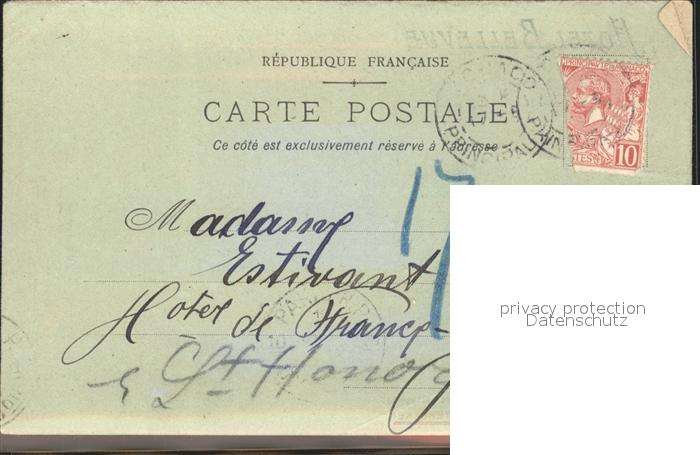 HOTEL BELLEVUE
RÉPUBLIQUE FRANÇAISE
CARTE POSTALE
Ce côté est exclusivement réservé à l'adresse
PRINCIPAUTÉ DE MONACO
10
MONACO
PRINCIPAUTE
Madame
Estivant
Hôtel de France
St Honoré
privacy protection
Datenschutz